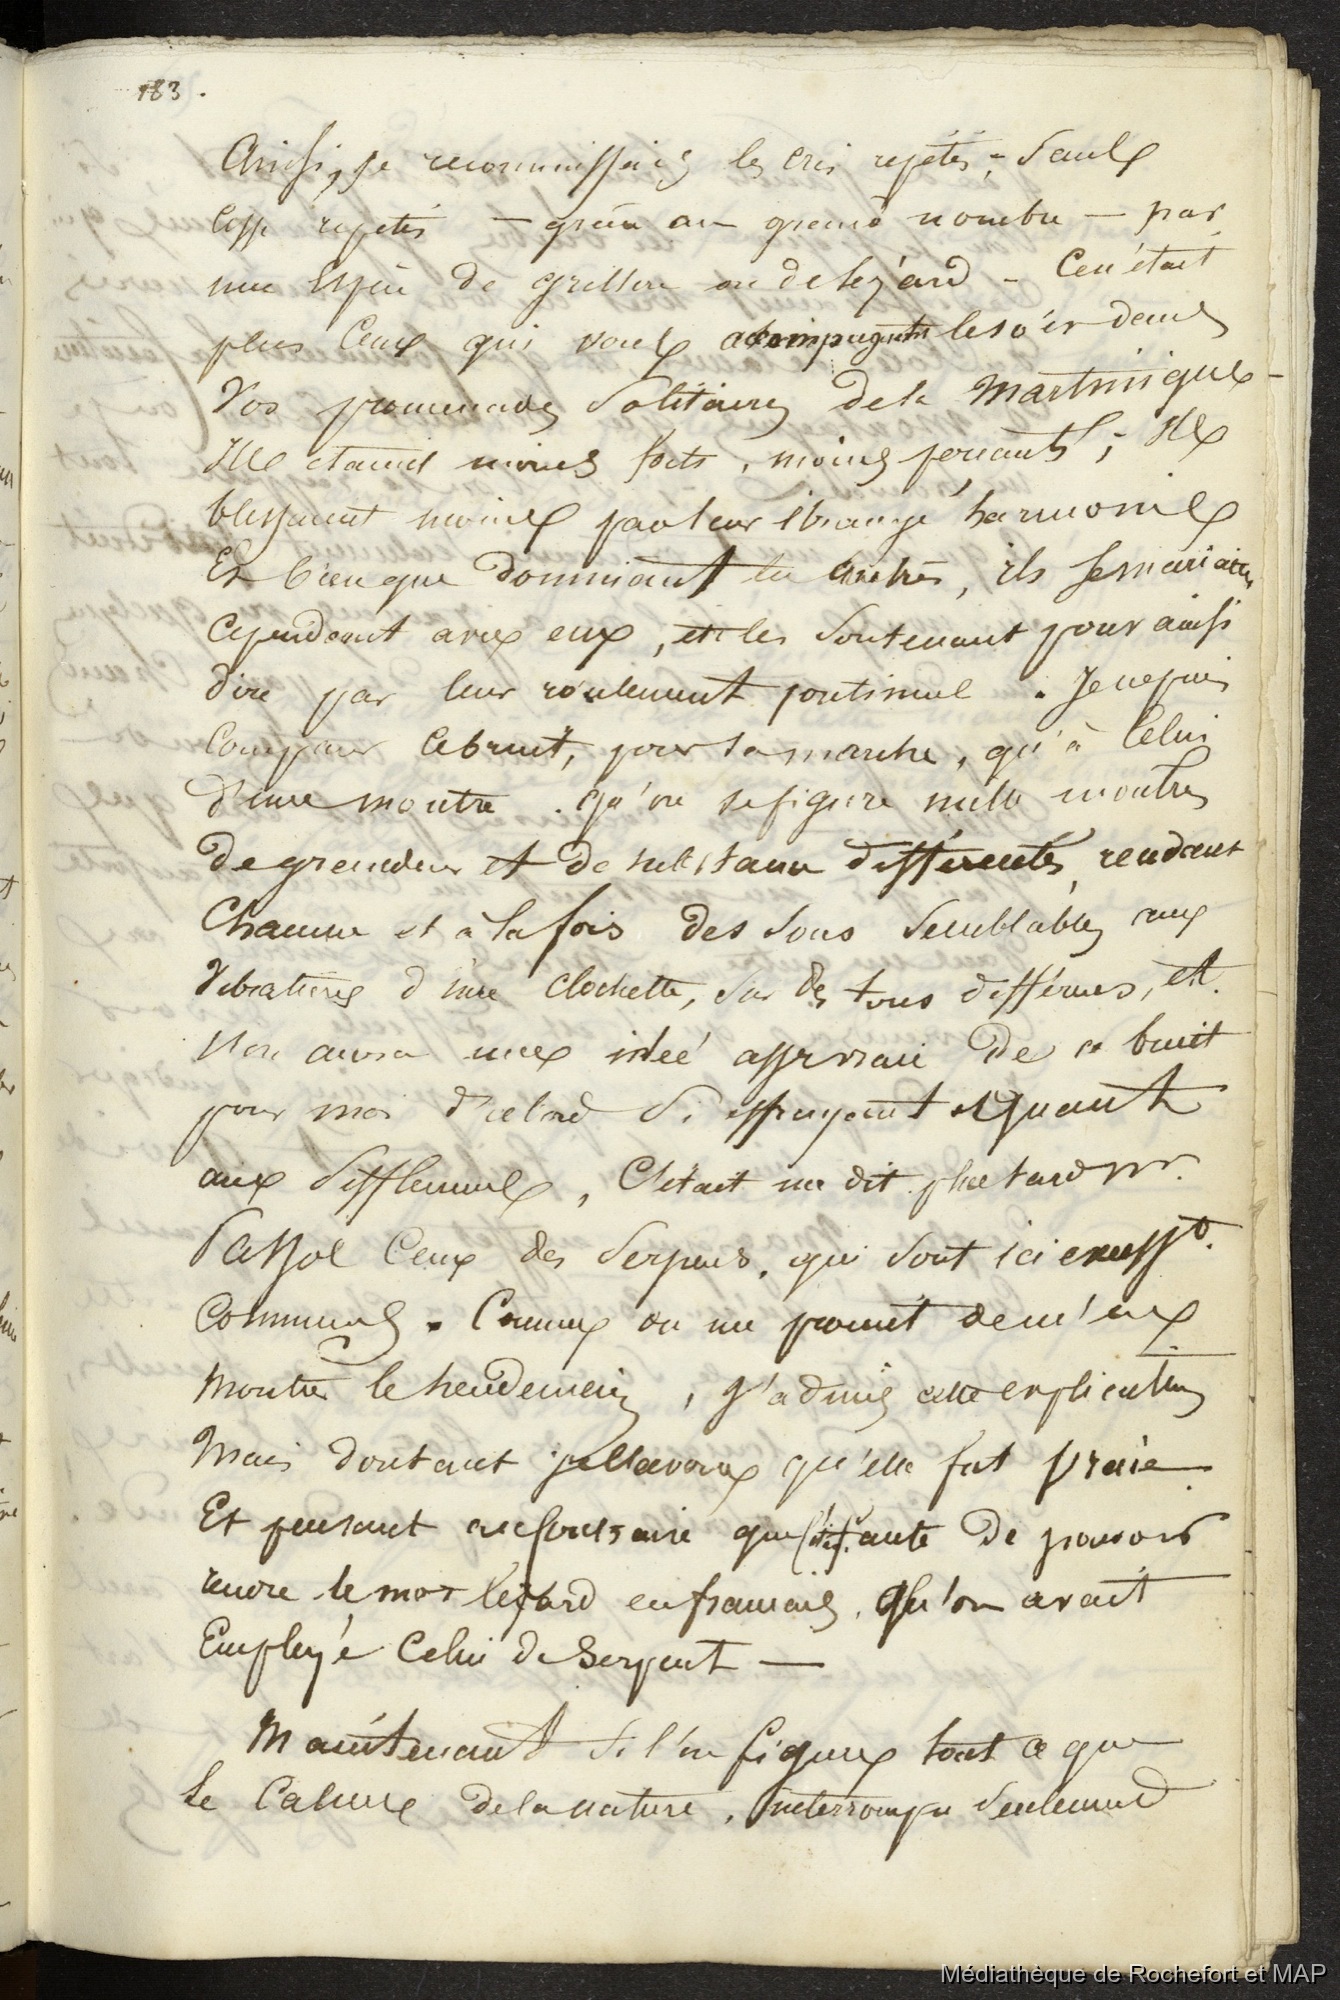 183.
Ainsi, je reconnaissais les cris répétés, sans
cesse répétés — grâce au grand nombre — par
une espèce de grillon ou de lézard - Ce n'était
plus ceux qui vous accompagnent le soir dans
Vos promenades solitaires de la Martinique -
Ils etaient moins forts, moins perçants; Ils
blessaient moins par leur étrange harmonie
Et bien que dominant les autres, ils se mariaient
Cependant avec eux, et les soutenant pour ainsi
dire par leur roulement continuel. Je ne puis
Comparer ce bruit, pour sa marche, qu'à celui
d'une montre. qu'on se figure mille montres
de grandeur et de substance différentes, rendant
Chacune et à la fois des sons semblables aux
Vibrations d'une clochette, sur des tons différens, et
l'on aura une idée assez vraie de ce bruit
pour moi d'abord si effrayant et Quant
aux sifflemens, C'était me dit plus tard Mr.
Passol Ceux des Serpens, qui sont ici
Communs. Comme on me promit de m'en
montrer le lendemain, j'admis cette explication
Mais doutant qu'elle fut vraie
Et pensant au contraire que faute de pouvoir
rendre le mot lézard en français, qu'on avait
Employé Celui de Serpent —
Maintenant si l'on figure tout ce que
le Calme de la nature, interrompu seulement
Médiathèque de Rochefort et MAP